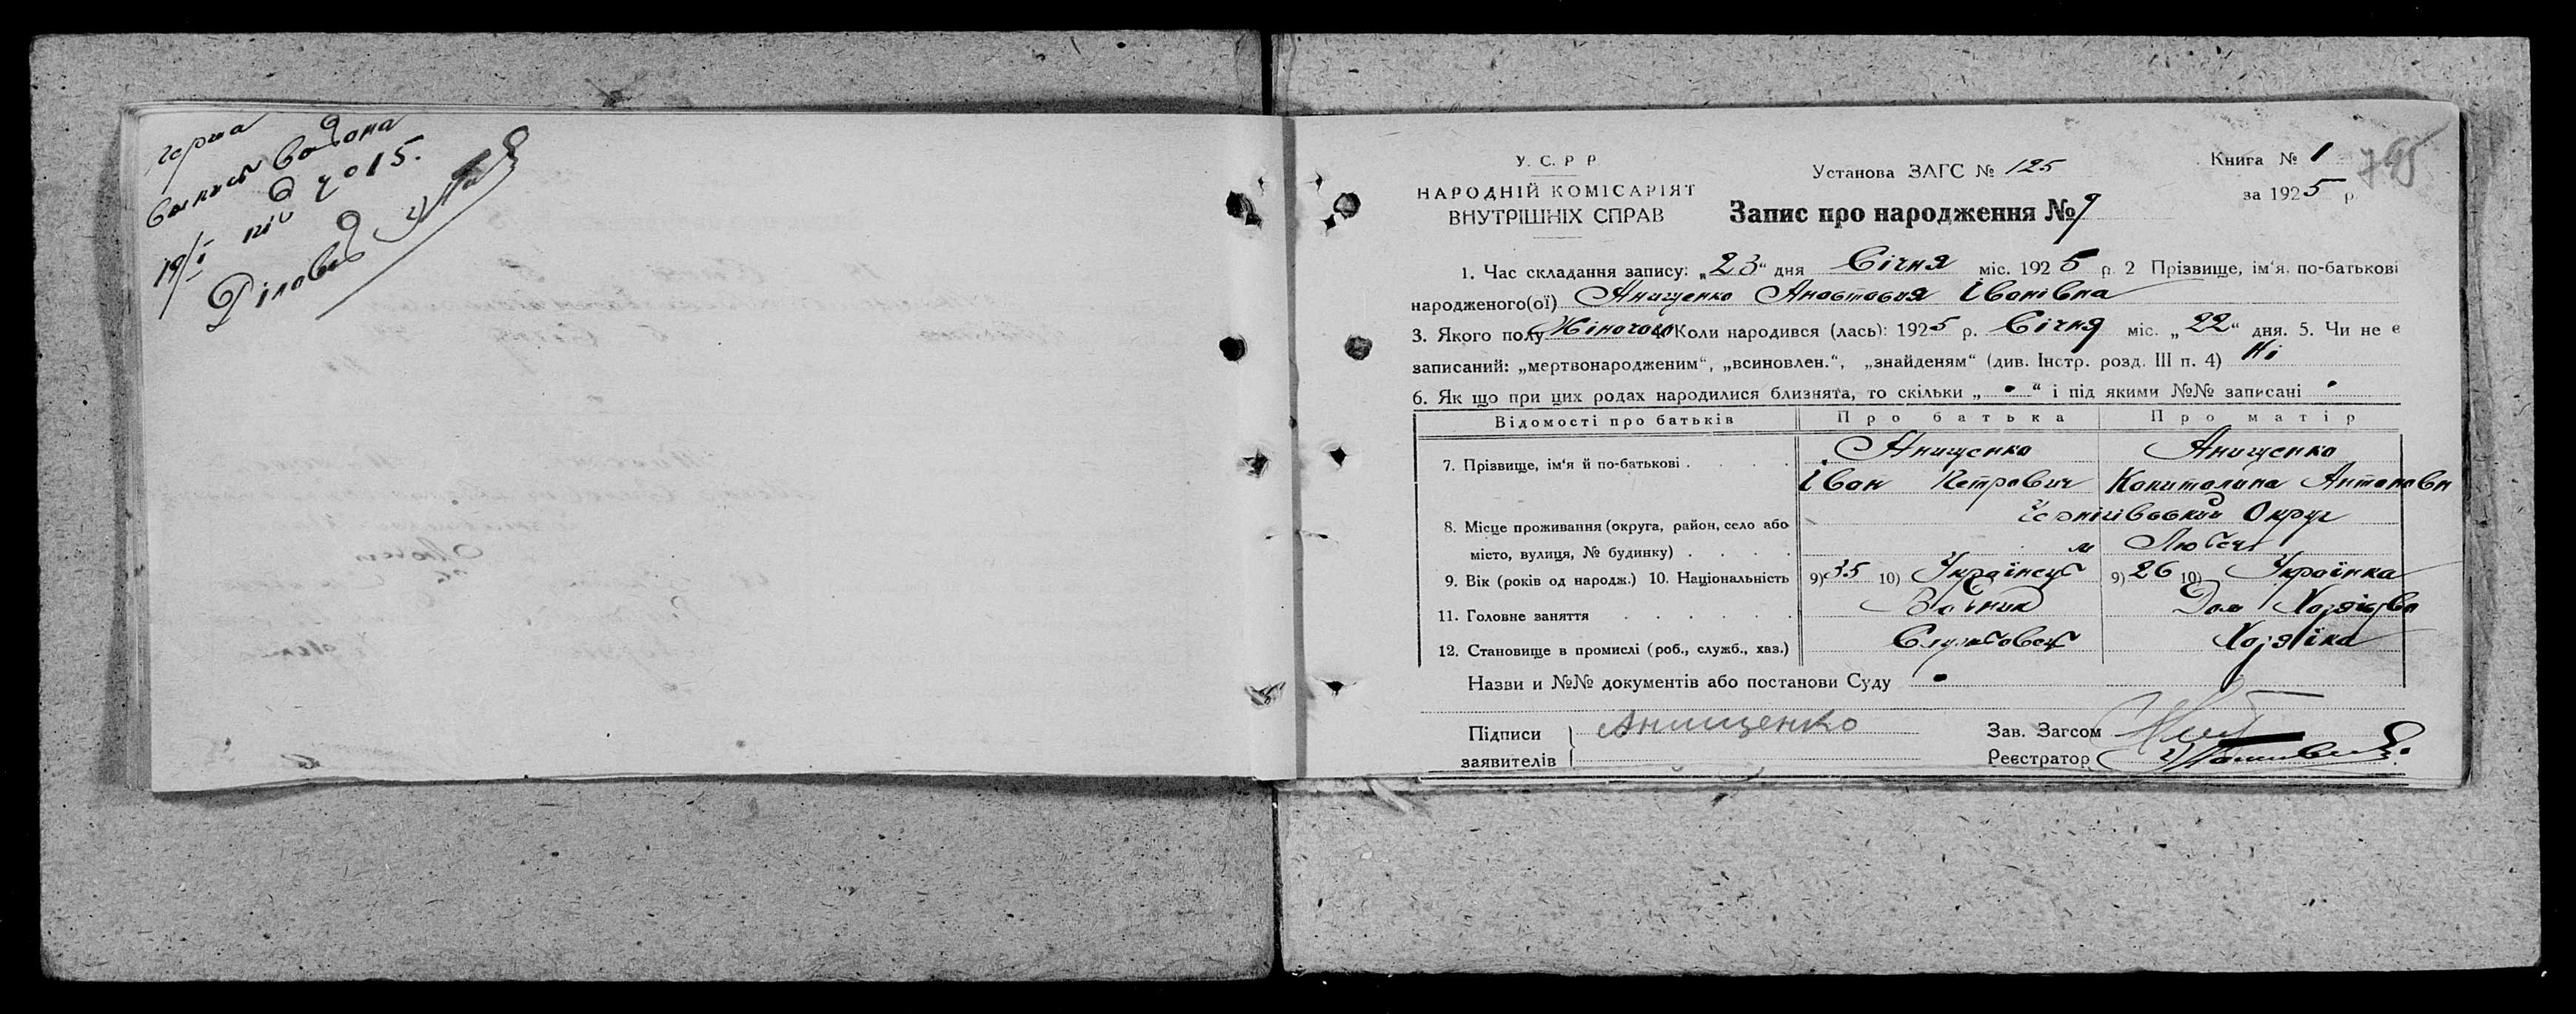 перша
выпись водона
19/I під № 15.
Діловод
У. С. Р. Р.
НАРОДНІЙ КОМІСАРІЯТ
ВНУТРІШНІХ СПРАВ
Установа ЗАГС № 125
Книга № 1
за 1925 р.
795
Запис про народження № 9
1. Час складання запису: „23“ дня Січня міс. 1925 р. 2 Прізвище, ім'я, по-батькові
народженого(ої) Анищенко Анастасия Іванівна
3. Якого полу Жіночого 4. Коли народився (лась): 1925 р. Січня міс. „22“ дня. 5. Чи не є
записаний: „мертвонародженим“, „всиновлен.“, „знайденям“ (див. Інстр. розд. III п. 4) Ні
6. Як що при цих родах народилися близнята, то скільки „ “ і під якими №№ записані
Відомості про батьків Про батька Про матір
7. Прізвище, ім'я й по-батькові . . . . Анищенко Анищенко
Іван Петрович Капиталина Антоновн
8. Місце проживання (округа, район, село або Чернігівський Округ
місто, вулиця, № будинку) . . . . м Любеч
9. Вік (років од народж.) 10. Національність 9) 35 10) Українець 9) 26 10) Українка
11. Головне заняття . . . . . . Дом Хозяйство
12. Становище в промислі (роб., служб., хаз.) Службовець Хозяїка
Назви и №№ документів або постанови Суду
Підписи Анищенко Зав. Загсом
заявителів Реєстратор